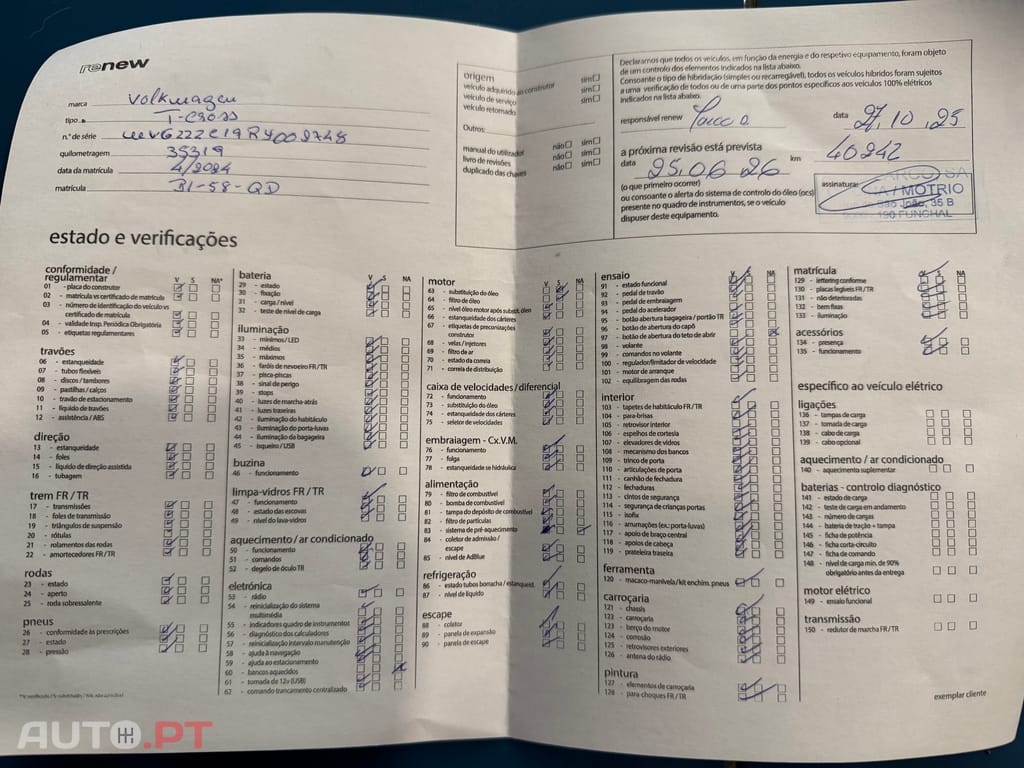 renew
marca Volkwagen
tipo T-CROSS
n.º de série
quilometragem 35319
data da matrícula 4/2024
matrícula BI-58-QD
origem
veículo adquirido ao construtor sim
veículo de serviço sim
veículo retomado sim
Outros:
manual do utilizador não sim
livro de revisões não sim
duplicado das chaves não sim
Declaramos que todos os veículos, em função da energia e do respetivo equipamento, foram objeto
de um controlo dos elementos indicados na lista abaixo.
Consoante o tipo de hibridação (simples ou recarregável), todos os veículos híbridos foram sujeitos
a uma verificação de todos ou de uma parte dos pontos específicos aos veículos 100% elétricos
indicados na lista abaixo.
responsável renew data 27.10.25
a próxima revisão está prevista
data 25.06.26 km 40242
(o que primeiro ocorrer)
ou consoante o alerta do sistema de controlo do óleo (ocs)
presente no quadro de instrumentos, se o veículo
dispuser deste equipamento.
assinatura:
/ MOTRIO
São João, 35 B
FUNCHAL
estado e verificações
conformidade /
regulamentar V S NA*
01 - placa do construtor
02 - matrícula vs certificado de matrícula
03 - número de identificação do veículo vs
certificado de matrícula
04 - validade Insp. Periódica Obrigatória
05 - etiquetas regulamentares
travões
06 - estanqueidade
07 - tubos flexíveis
08 - discos / tambores
09 - pastilhas / calços
10 - travão de estacionamento
11 - líquido de travões
12 - assistência / ABS
direção
13 - estanqueidade
14 - foles
15 - líquido de direção assistida
16 - tubagem
trem FR / TR
17 - transmissões
18 - foles de transmissão
19 - triângulos de suspensão
20 - rótulas
21 - rolamentos das rodas
22 - amortecedores FR / TR
rodas
23 - estado
24 - aperto
25 - roda sobresselente
pneus
26 - conformidade às prescrições
27 - estado
28 - pressão
bateria V S NA
29 - estado
30 - fixação
31 - carga / nível
32 - teste de nível de carga
iluminação
33 - mínimos / LED
34 - médios
35 - máximos
36 - faróis de nevoeiro FR / TR
37 - pisca-piscas
38 - sinal de perigo
39 - stops
40 - luzes de marcha-atrás
41 - luzes traseiras
42 - iluminação do habitáculo
43 - iluminação do porta-luvas
44 - iluminação da bagageira
45 - isqueiro / USB
buzina
46 - funcionamento
limpa-vidros FR / TR
47 - funcionamento
48 - estado das escovas
49 - nível do lava-vidros
aquecimento / ar condicionado
50 - funcionamento
51 - comandos
52 - degelo de óculo TR
eletrónica
53 - rádio
54 - reinicialização do sistema
multimédia
55 - indicadores quadro de instrumentos
56 - diagnóstico dos calculadores
57 - reinicialização intervalo manutenção
58 - ajuda à navegação
59 - ajuda ao estacionamento
60 - bancos aquecidos
61 - tomada de 12v (USB)
62 - comando trancamento centralizado
motor V S NA
63 - substituição do óleo
64 - filtro de óleo
65 - nível óleo motor após substit. óleo
66 - estanqueidade dos cárteres
67 - etiquetas de preconizações
construtor
68 - velas / injetores
69 - filtro de ar
70 - estado da correia
71 - correia de distribuição
caixa de velocidades / diferencial
72 - funcionamento
73 - substituição do óleo
74 - estanqueidade dos cárteres
75 - seletor de velocidades
embraiagem - Cx.V.M.
76 - funcionamento
77 - folga
78 - estanqueidade se hidráulica
alimentação
79 - filtro de combustível
80 - bomba de combustível
81 - tampa do depósito de combustível
82 - filtro de partículas
83 - sistema de pré-aquecimento
84 - coletor de admissão /
escape
85 - nível de AdBlue
refrigeração
86 - estado tubos borracha / estanqueid.
87 - nível de líquido
escape
88 - coletor
89 - panela de expansão
90 - panela de escape
ensaio V S NA
91 - estado funcional
92 - pedal de travão
93 - pedal de embraiagem
94 - pedal do acelerador
95 - botão abertura bagageira / portão TR
96 - botão de abertura do capô
97 - botão de abertura do teto de abrir
98 - volante
99 - comandos no volante
100 - regulador/limitador de velocidade
101 - motor de arranque
102 - equilibragem das rodas
interior
103 - tapetes de habitáculo FR / TR
104 - para-brisas
105 - retrovisor interior
106 - espelhos de cortesia
107 - elevadores de vidros
108 - mecanismo dos bancos
109 - trinco de porta
110 - articulações de porta
111 - canhão de fechadura
112 - fechaduras
113 - cintos de segurança
114 - segurança de crianças portas
115 - isofix
116 - arrumações (ex.: porta-luvas)
117 - apoio de braço central
118 - apoios de cabeça
119 - prateleira traseira
ferramenta
120 - macaco-manivela/kit enchim. pneus
carroçaria
121 - chassis
122 - carroçaria
123 - berço do motor
124 - corrosão
125 - retrovisores exteriores
126 - antena do rádio
pintura
127 - elementos de carroçaria
128 - para choques FR / TR
matrícula NA
129 - lettering conforme
130 - placas legíveis FR / TR
131 - não deterioradas
132 - bem fixas
133 - iluminação
acessórios
134 - presença
135 - funcionamento
específico ao veículo elétrico
ligações
136 - tampas de carga
137 - tomada de carga
138 - cabo de carga
139 - cabo opcional
aquecimento / ar condicionado
140 - aquecimento suplementar
baterias - controlo diagnóstico
141 - estado de carga
142 - teste de carga em andamento
143 - número de cargas
144 - bateria de tração + tampa
145 - ficha de potência
146 - ficha corta-circuito
147 - ficha de comando
148 - nível de carga mín. de 90%
obrigatório antes da entrega
motor elétrico
149 - ensaio funcional
transmissão
150 - redutor de marcha FR / TR
exemplar cliente
AUTO.PT